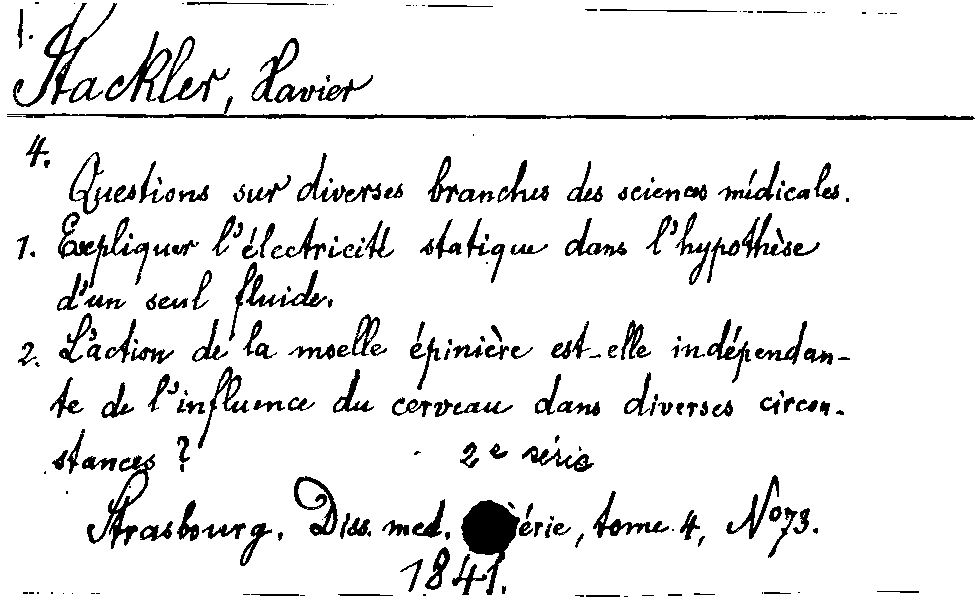 1.
Stackler, Xavier
4.
Questions sur diverses branches des sciences médicales.
1. Expliquer l'électricité statique dans l'hypothèse
d'un seul fluide.
2. L'action de la moelle épinière est-elle indépendan-
te de l'influence du cerveau dans diverses circon-
stances ?
2e série
Strasbourg. Diss. med. série, tome 4, No 73.
1841.